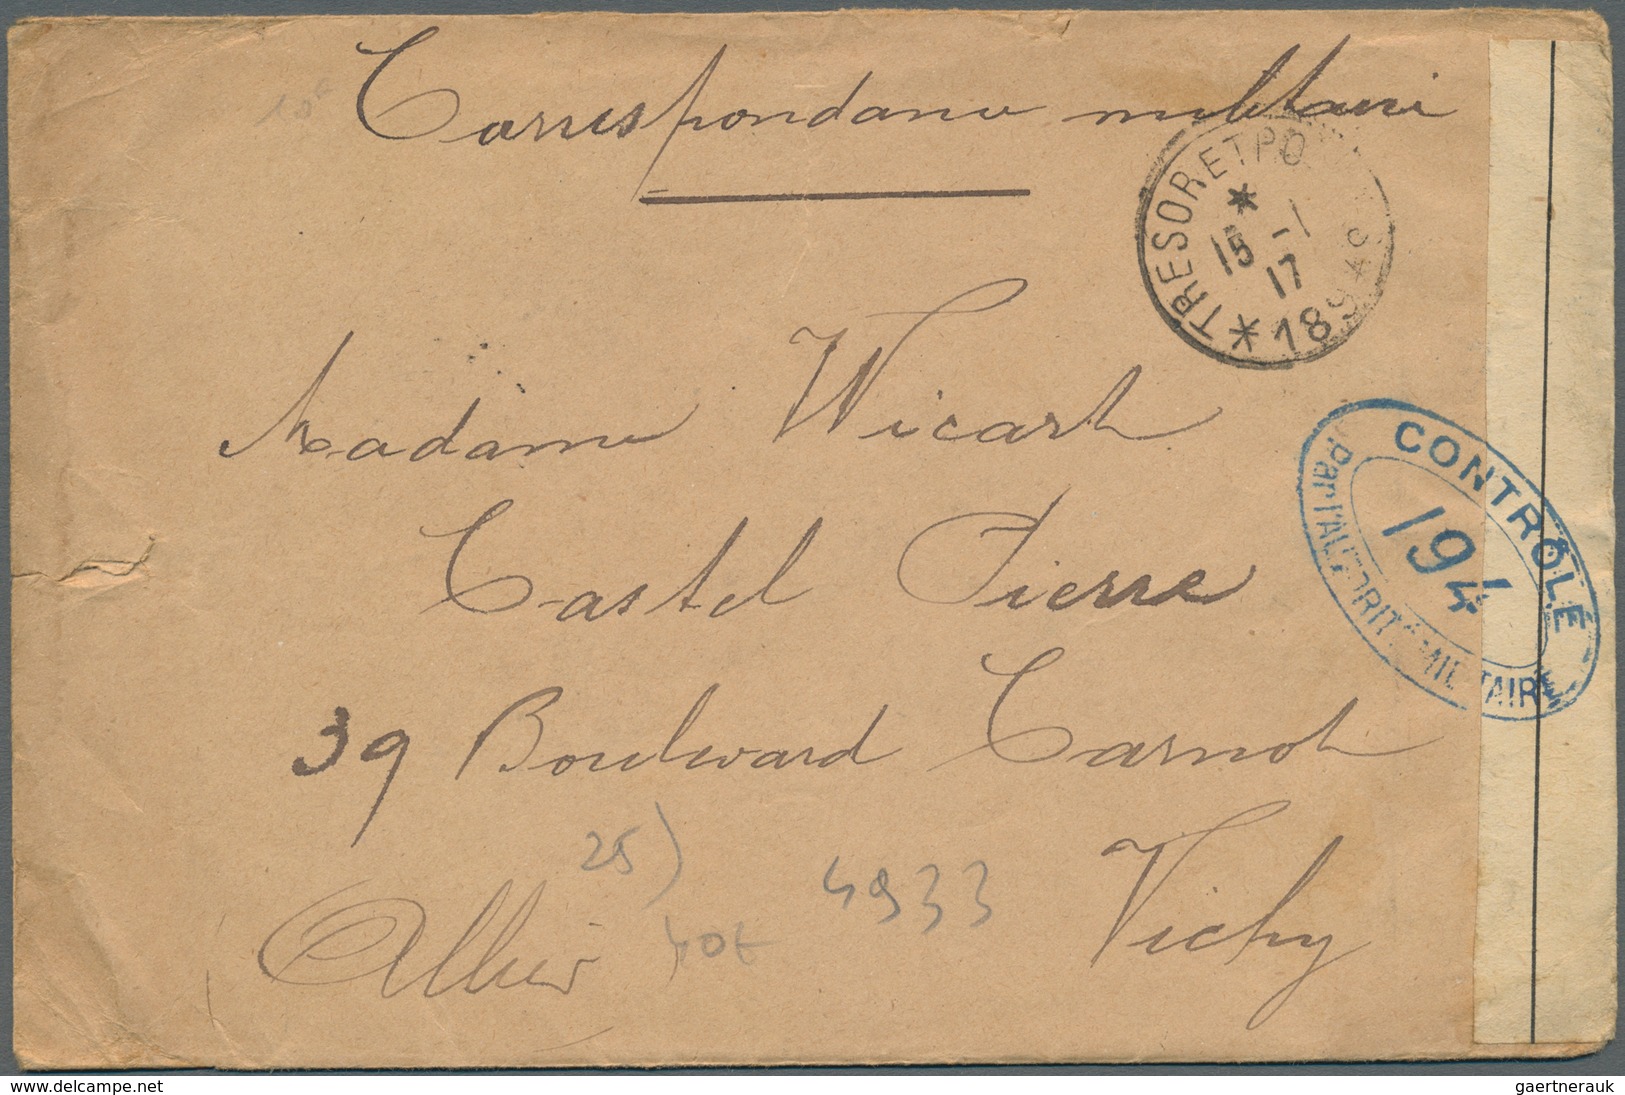 Correspondance militaire
* TRESOR ET PO
*
15 -1
17
* 189 *
Madame Wicart
CONTRÔLE
194
Par l'AUTORITÉ MILITAIRE
Castel Pierre
39 Boulevard Carnot
25)
4933
Vichy
Allier
delcampe.net
gaertnerauk